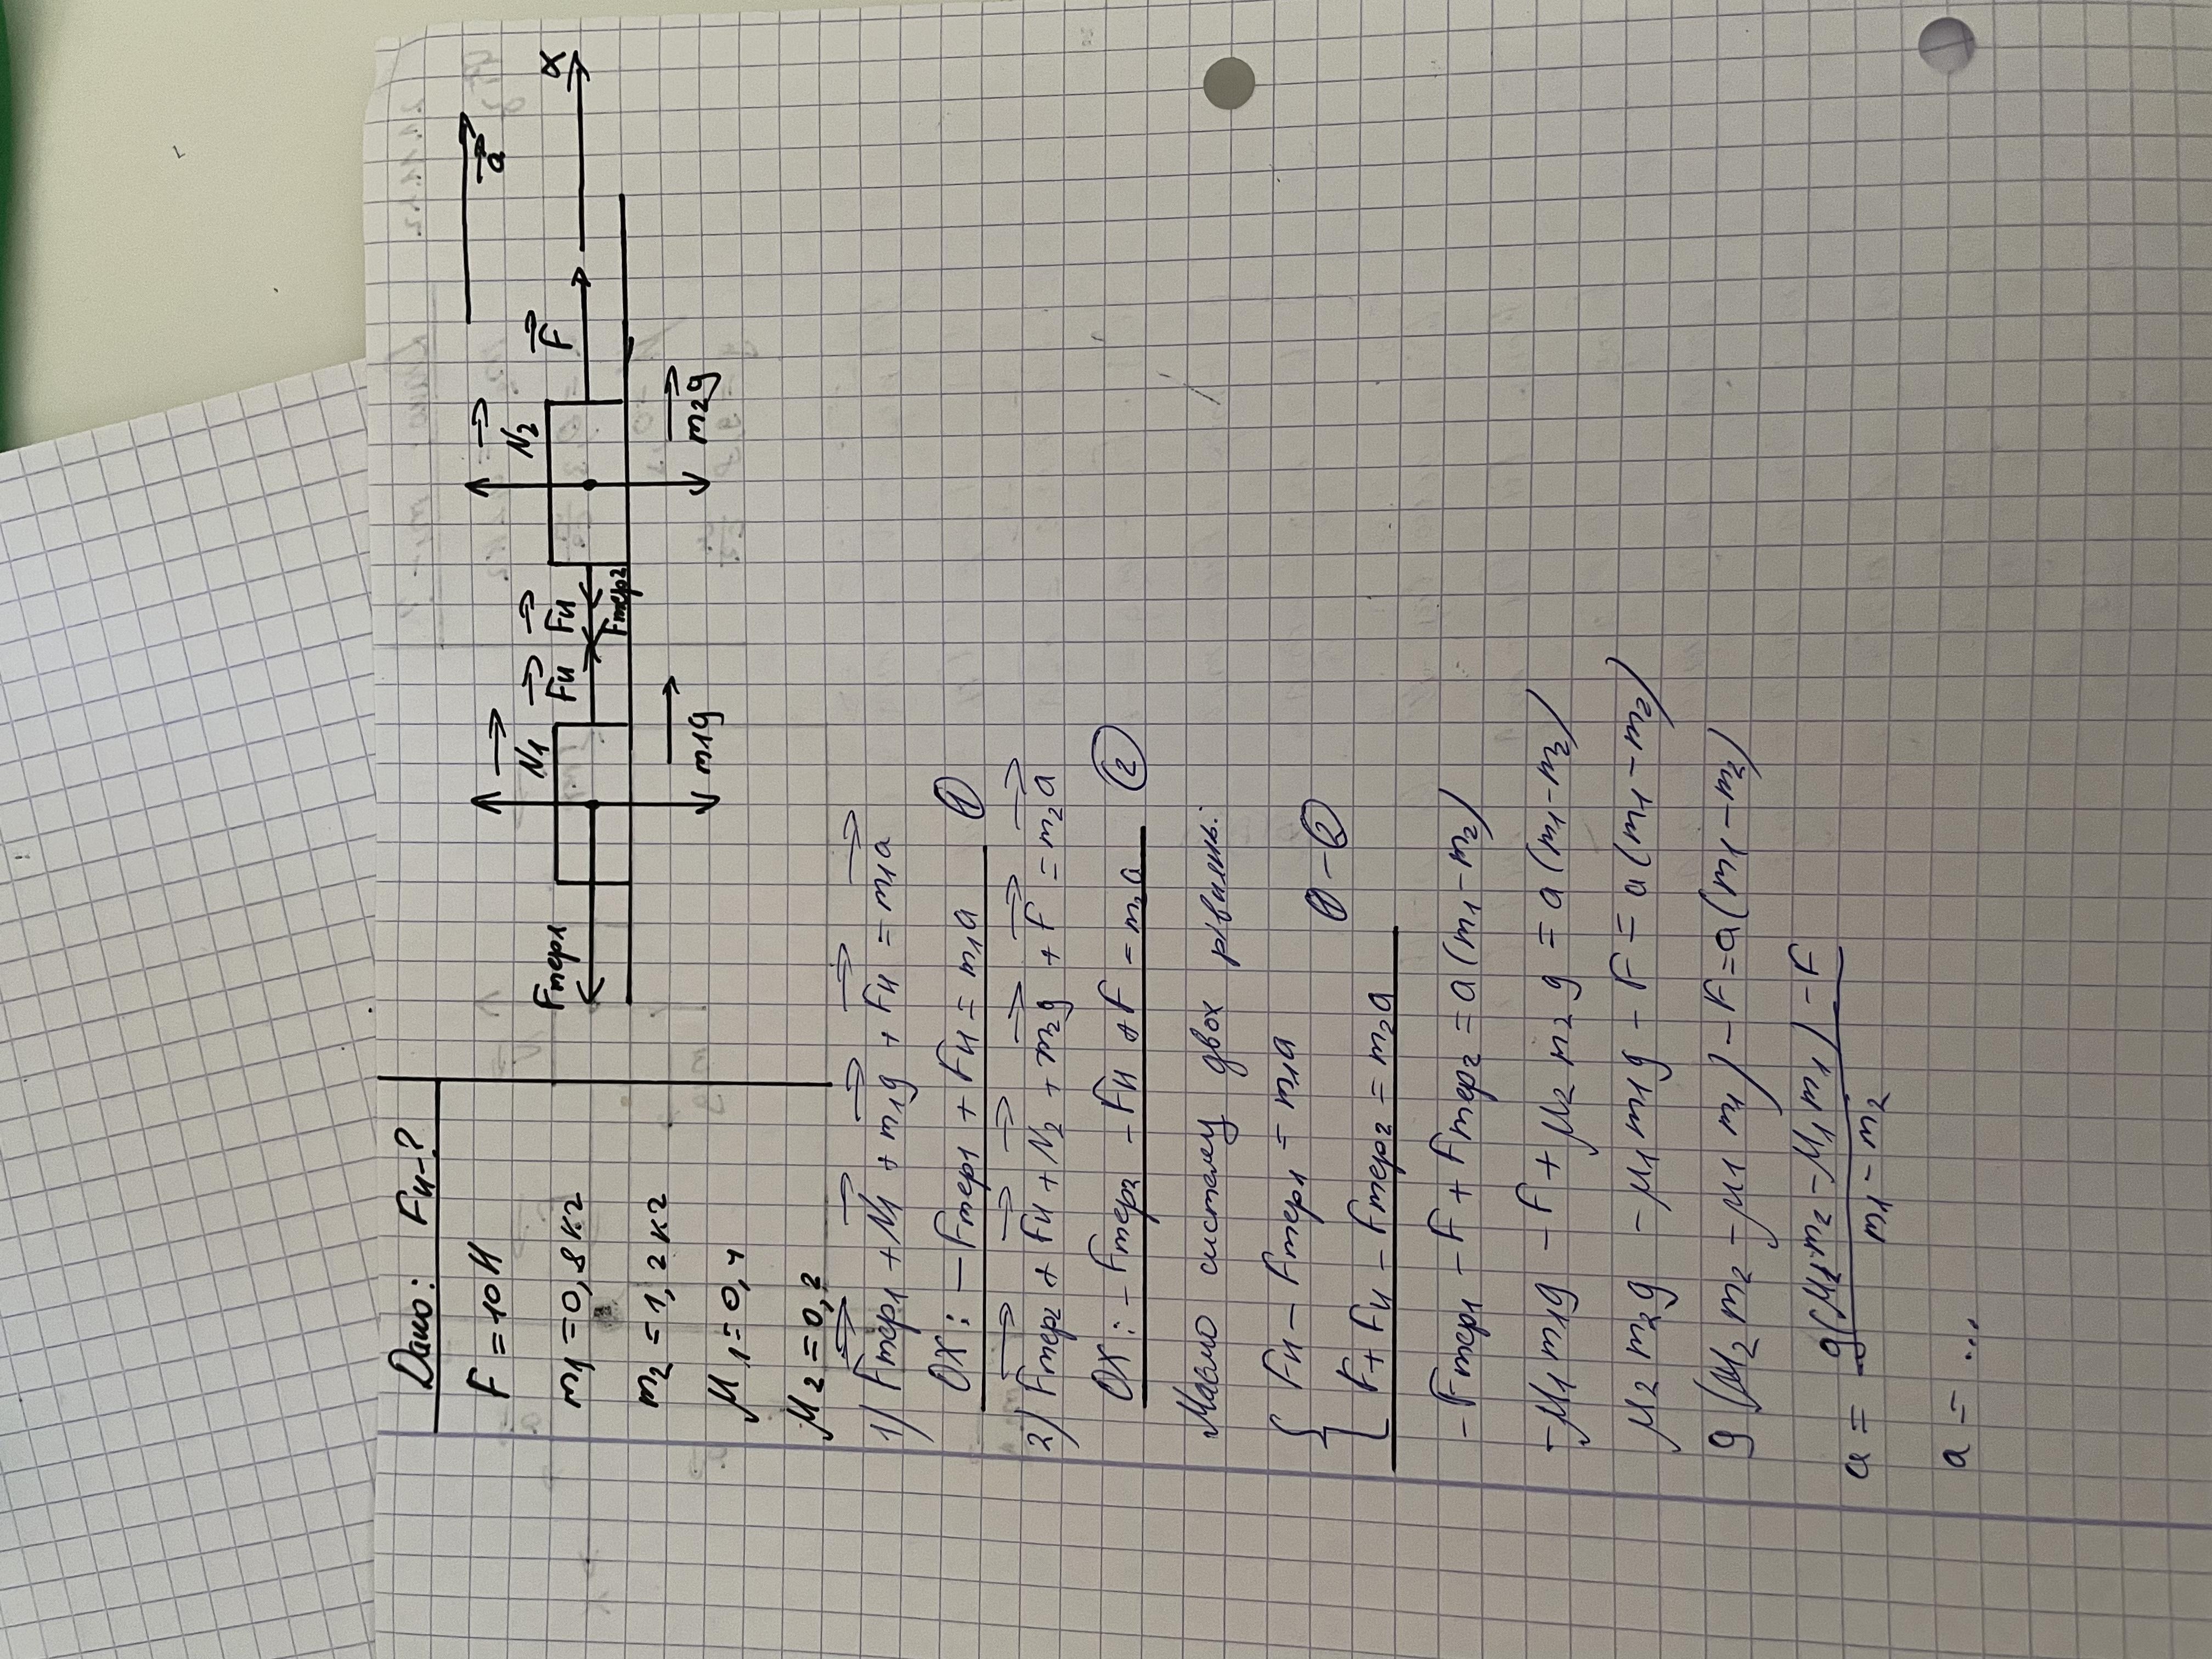 Дано: Fн-?
F = 10 Н
m1 = 0,8 кг
m2 = 1,2 кг
μ1 = 0,4
μ2 = 0,2
a
X
N1 Fн Fн N2 F
Fтер1 Fтер2
m1g m2g
1) Fтер1 + N1 + m1g + Fн = m1a
OX: - Fтер1 + Fн = m1a ①
2) Fтер2 + Fн + N2 + m2g + F = m2a
OX: - Fтер2 - Fн + F = m2a ②
Маємо систему двох рівнянь:
{ Fн - Fтер1 = m1a
F + Fн - Fтер2 = m2a ① - ②
- Fтер1 - F + Fтер2 = a(m1 - m2)
- μ1 m1g - F + μ2 m2 g = a(m1 - m2)
μ2 m2g - μ1 m1g - F = a(m1 - m2)
g(μ2 m2 - μ1 m1) - F = a(m1 - m2)
a = g(μ2·m2 - μ1 m1) - F
m1 - m2
a = ...